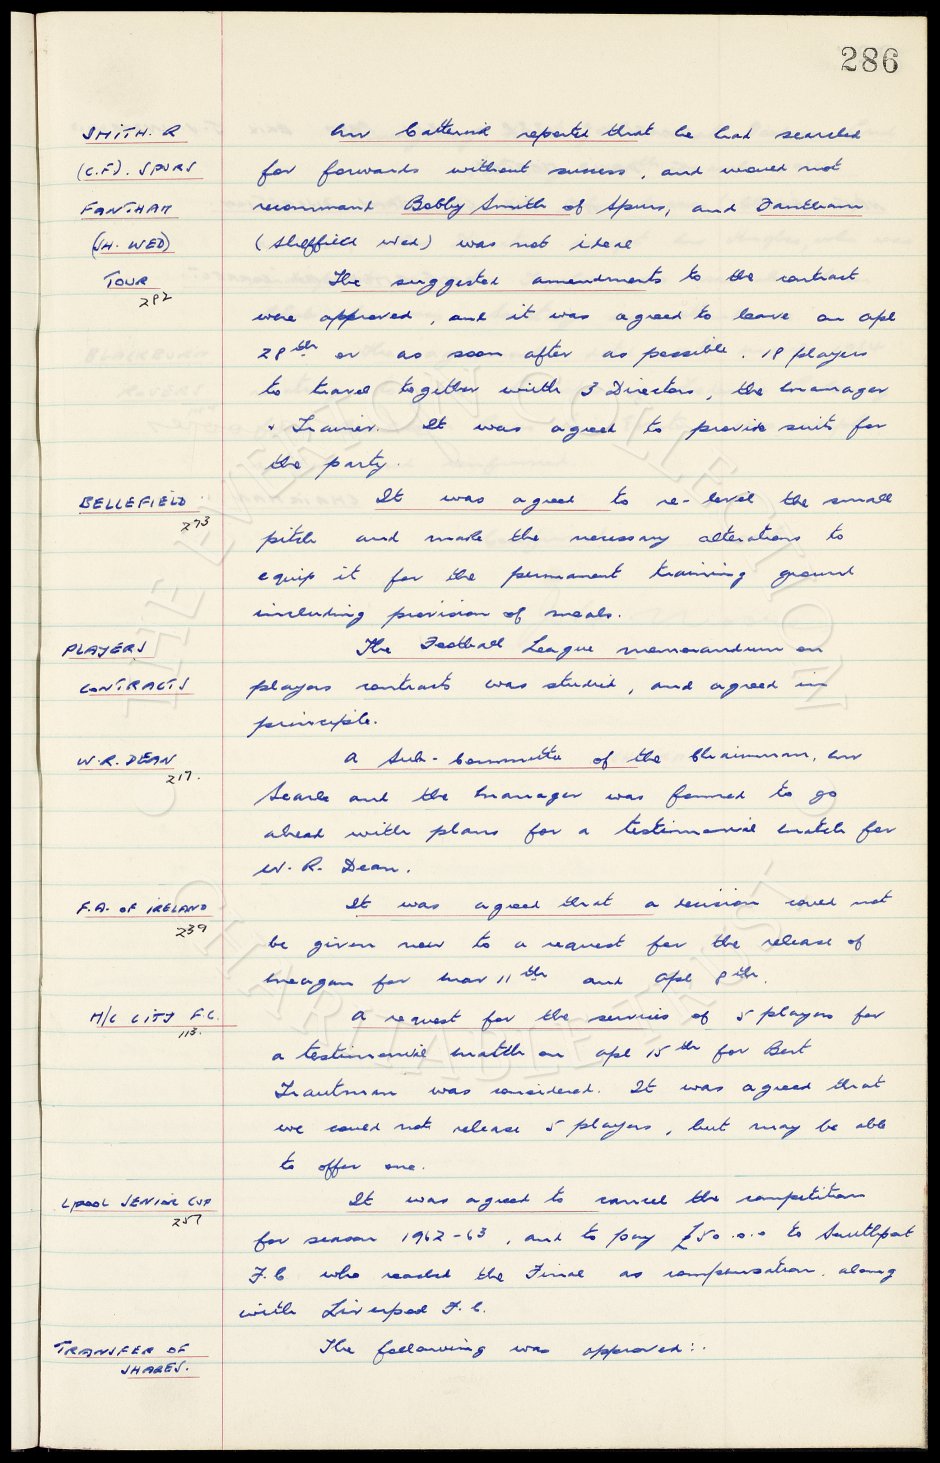 286
SMITH. R
(C.F). SPURS
FANTHAM
(SH. WED)
Mr Catterick reported that he had searched
for forwards without success, and would not
recommend Bobby Smith of Spurs, and Fantham
(Sheffield Wed) was not ideal
TOUR
292
The suggested amendments to the contract
were approved, and it was agreed to leave on Apl
28th or as soon after as possible. 18 players
to travel together with 3 Directors, the Manager
& Trainer. It was agreed to provide suits for
the party.
BELLEFIELD
273
It was agreed to re-level the small
pitch and make the necessary alterations to
equip it for the permanent training ground
including provision of meals.
PLAYERS
CONTRACTS
The Football League memorandum on
players contracts was studied, and agreed in
principle.
W.R. DEAN
217.
A Sub-Committee of the Chairman, Mr
Searle and the Manager was formed to go
ahead with plans for a testimonial match for
W. R. Dean.
F.A. OF IRELAND
239
It was agreed that a decision could not
be given now to a request for the release of
Meagan for Mar 11th and Apl 8th.
M/C CITY F.C.
113.
A request for the services of 5 players for
a testimonial match on Apl 15th for Bert
Trautman was considered. It was agreed that
we could not release 5 players, but may be able
to offer one.
LPOOL SENIOR CUP
257
It was agreed to cancel the competition
for season 1962-63, and to pay £50.0.0 to Southport
F.C who reached the Final as compensation, along
with Liverpool F.C.
TRANSFER OF
SHARES.
The following was approved:.
THE EVERTON COLLECTION
CHARITABLE TRUST